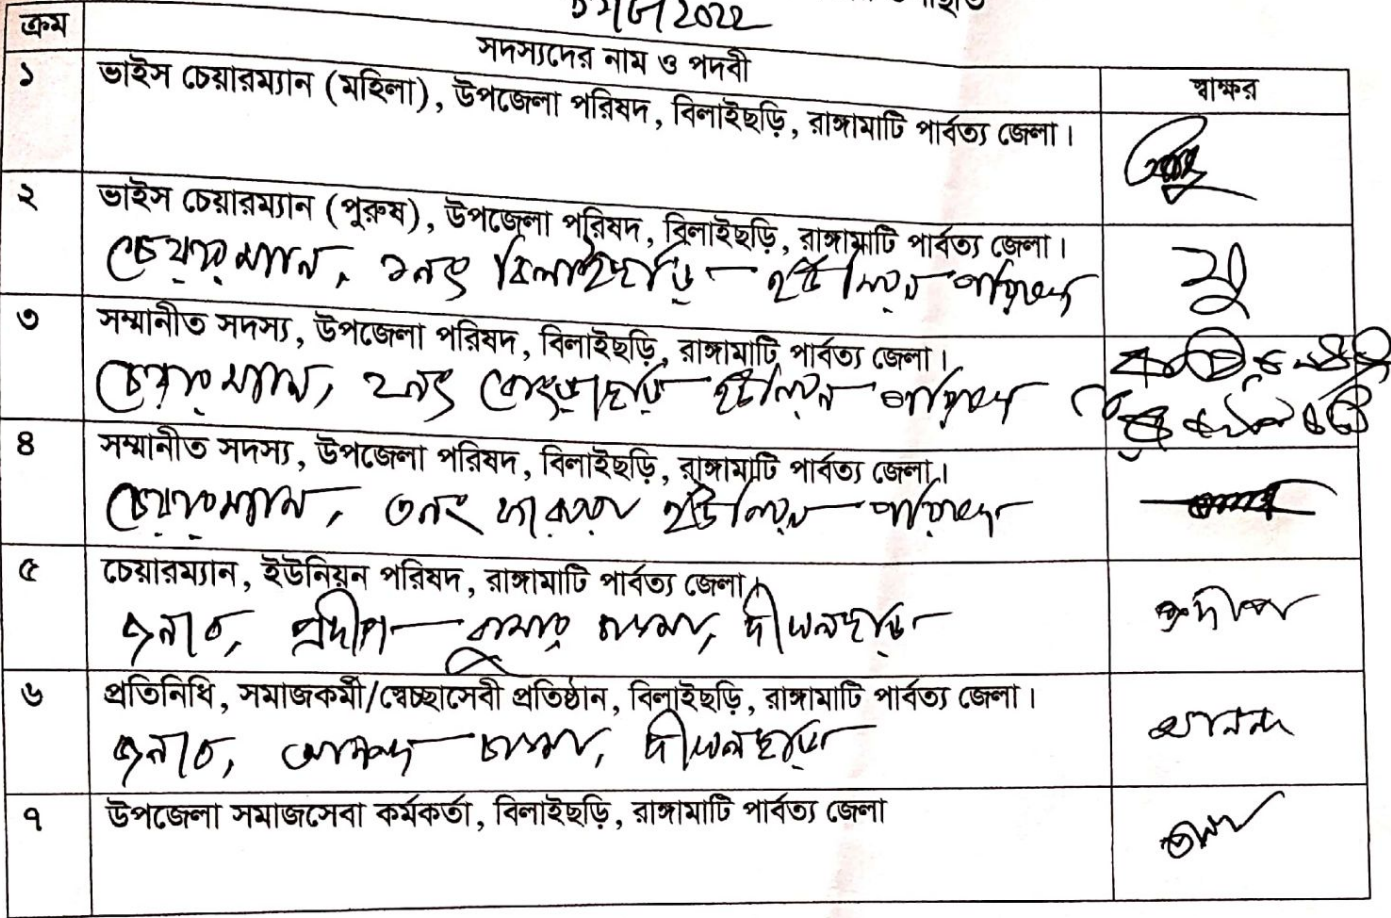 2022
ক্রম সদস্যদের নাম ও পদবী স্বাক্ষর
১ ভাইস চেয়ারম্যান (মহিলা), উপজেলা পরিষদ, বিলাইছড়ি, রাঙ্গামাটি পার্বত্য জেলা।
২ ভাইস চেয়ারম্যান (পুরুষ), উপজেলা পরিষদ, বিলাইছড়ি, রাঙ্গামাটি পার্বত্য জেলা।
চেয়ারম্যান, ১নং বিলাইছড়ি ইউনিয়ন পরিষদ
৩ সম্মানীত সদস্য, উপজেলা পরিষদ, বিলাইছড়ি, রাঙ্গামাটি পার্বত্য জেলা।
চেয়ারম্যান, ২নং কেংড়াছড়ি ইউনিয়ন পরিষদ
৪ সম্মানীত সদস্য, উপজেলা পরিষদ, বিলাইছড়ি, রাঙ্গামাটি পার্বত্য জেলা।
চেয়ারম্যান, ৩নং ফারুয়া ইউনিয়ন পরিষদ
৫ চেয়ারম্যান, ইউনিয়ন পরিষদ, রাঙ্গামাটি পার্বত্য জেলা।
জনাব, প্রদীপ কুমার চাকমা, দীঘলছড়ি প্রদীপ
৬ প্রতিনিধি, সমাজকর্মী/স্বেচ্ছাসেবী প্রতিষ্ঠান, বিলাইছড়ি, রাঙ্গামাটি পার্বত্য জেলা।
জনাব, আনন্দ চাকমা, দীঘলছড়ি আনন্দ
৭ উপজেলা সমাজসেবা কর্মকর্তা, বিলাইছড়ি, রাঙ্গামাটি পার্বত্য জেলা